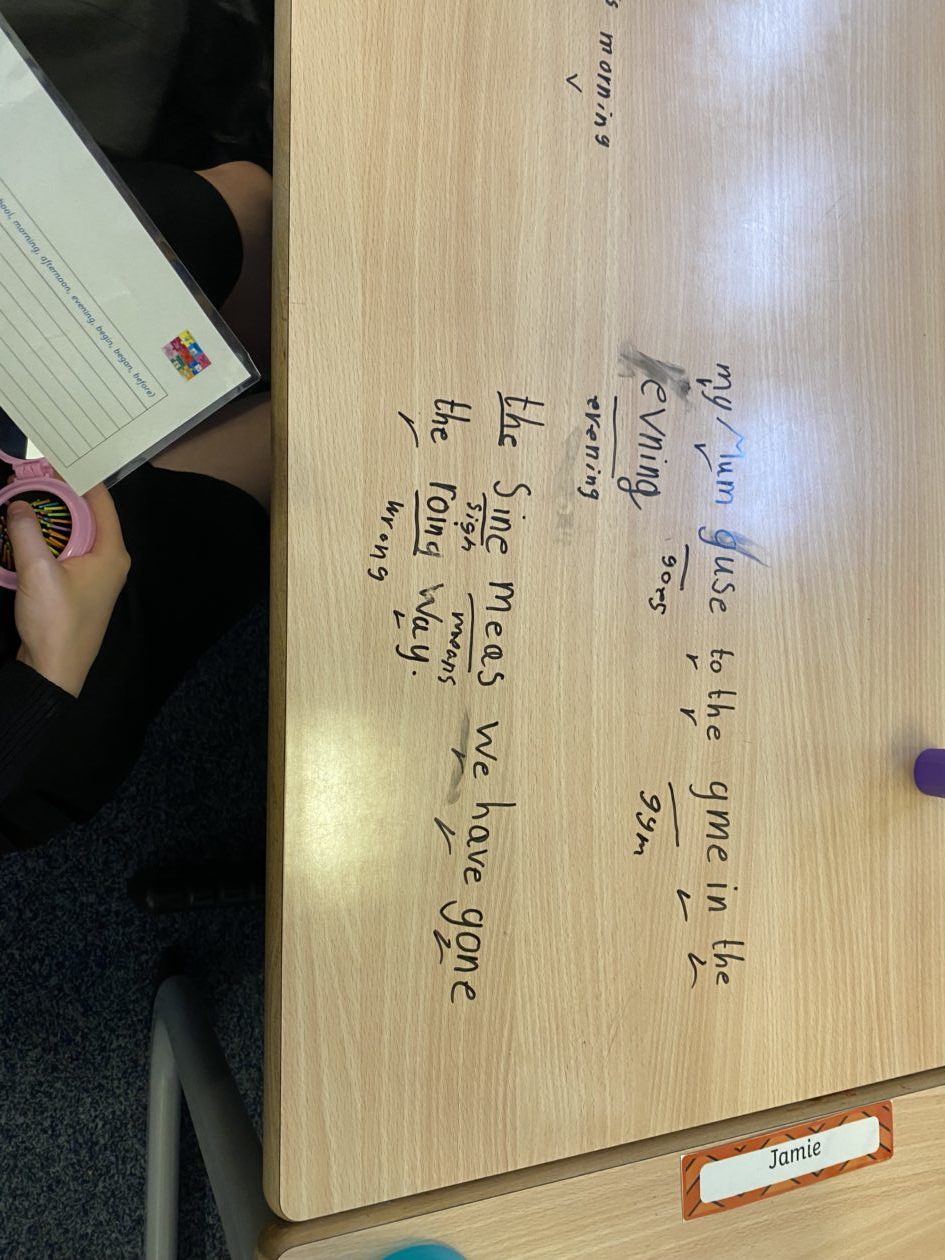 morning
my Mum guse to the gme in the
goes gym
evning
evening
the Sine meas we have gone
sign means
the roing way.
wrong
morning, afternoon, evening, begin, began, before)
Jamie